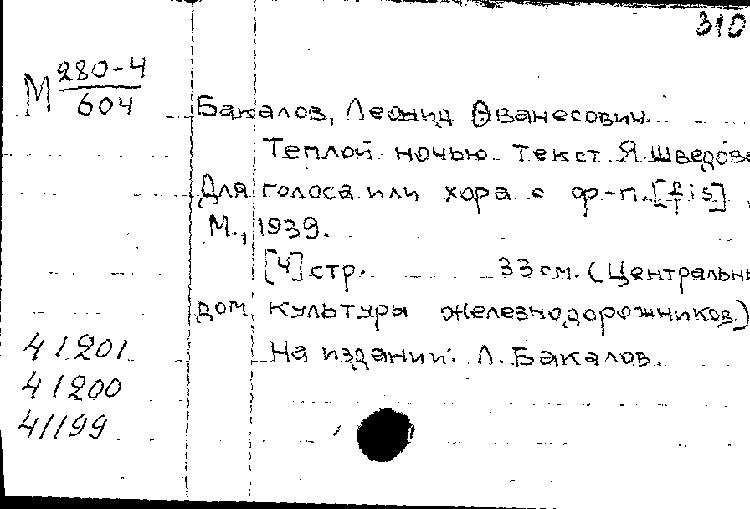 310
М 280-4
604
Бакалов, Леонид Ованесович.
Теплой ночью. Текст Я. Шведова
Для голоса или хора с ф-п. [fis]
М., 1939.
[4] стр. 33 см. (Центральны
дом культуры железнодорожников.)
На издании: Л. Бакалов.
41201
41200
41199